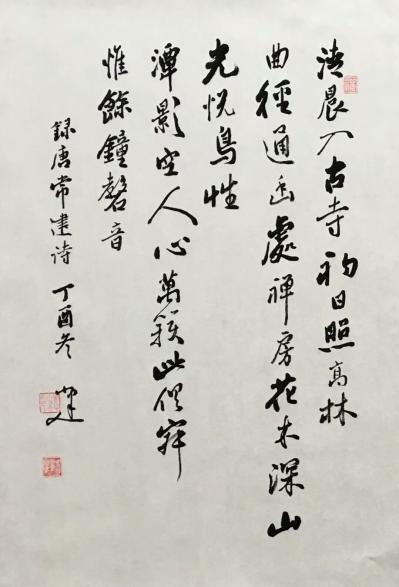 清晨入古寺初日照高林
曲徑通幽處禅房花木深山
光悦鳥性
潭影空人心萬籟此俱寂
惟餘鐘磬音
録唐常建诗丁酉冬